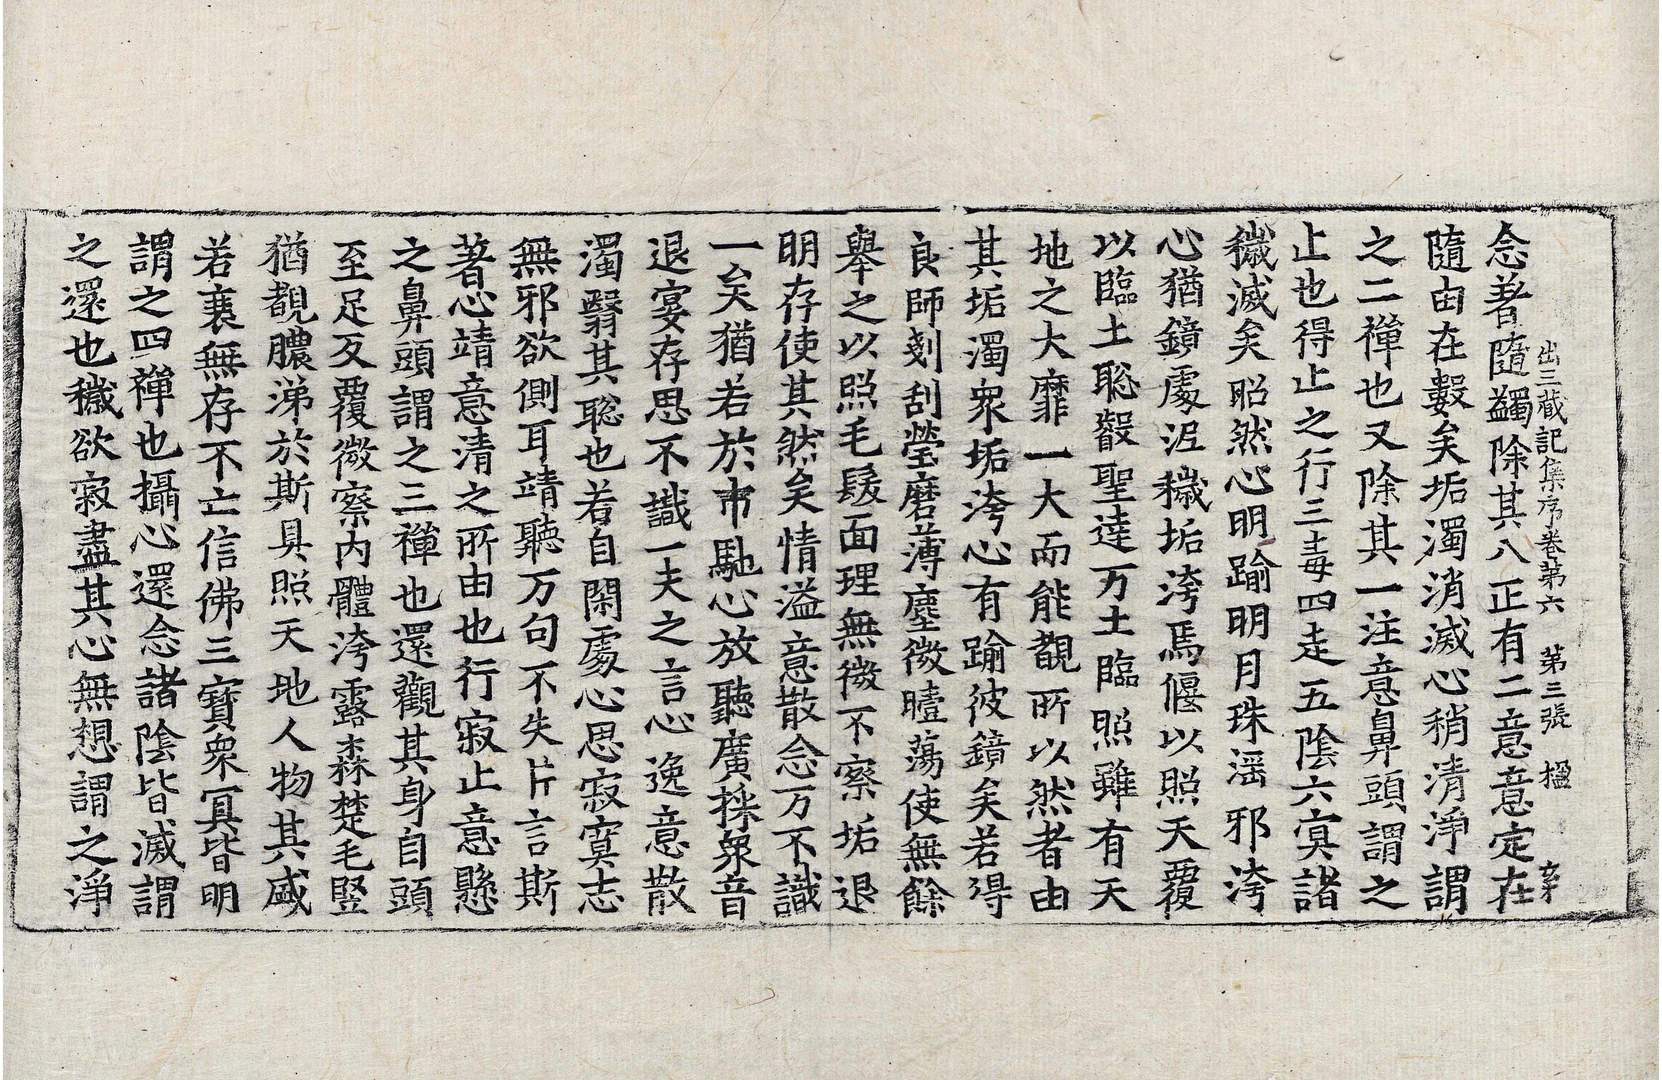 出三藏記集序卷第六　第三張　楹
念著隨蠲除其八正有二意意定在
隨由在數矣垢濁消滅心稍清淨謂
之二禪也又除其一注意鼻頭謂之
止也得止之行三毒四走五陰六冥諸
穢滅矣昭然心明踰明月珠滛邪洿
心猶鏡處泥穢垢洿焉偃以照天覆
以臨土聡叡聖達万土臨照雖有天
地之大靡一大而能覩所以然者由
其垢濁衆垢洿心有踰彼鏡矣若得
良師刻刮瑩磨薄塵微曀蕩使無餘
舉之以照毛髮面理無微不察垢退
明存使其然矣情溢意散念万不識
一矣猶若於市馳心放聽廣採衆音
退宴存思不識一夫之言心逸意散
濁翳其聡也若自閑處心思寂寞志
無邪欲側耳靖聽万句不失片言斯
著心靖意清之所由也行寂止意懸
之鼻頭謂之三禪也還觀其身自頭
至足反覆微察内體洿露森楚毛竪
猶覩膿涕於斯具照天地人物其盛
若衰無存不亡信佛三寶衆冥皆明
謂之四禪也攝心還念諸陰皆滅謂
之還也穢欲寂盡其心無想謂之淨